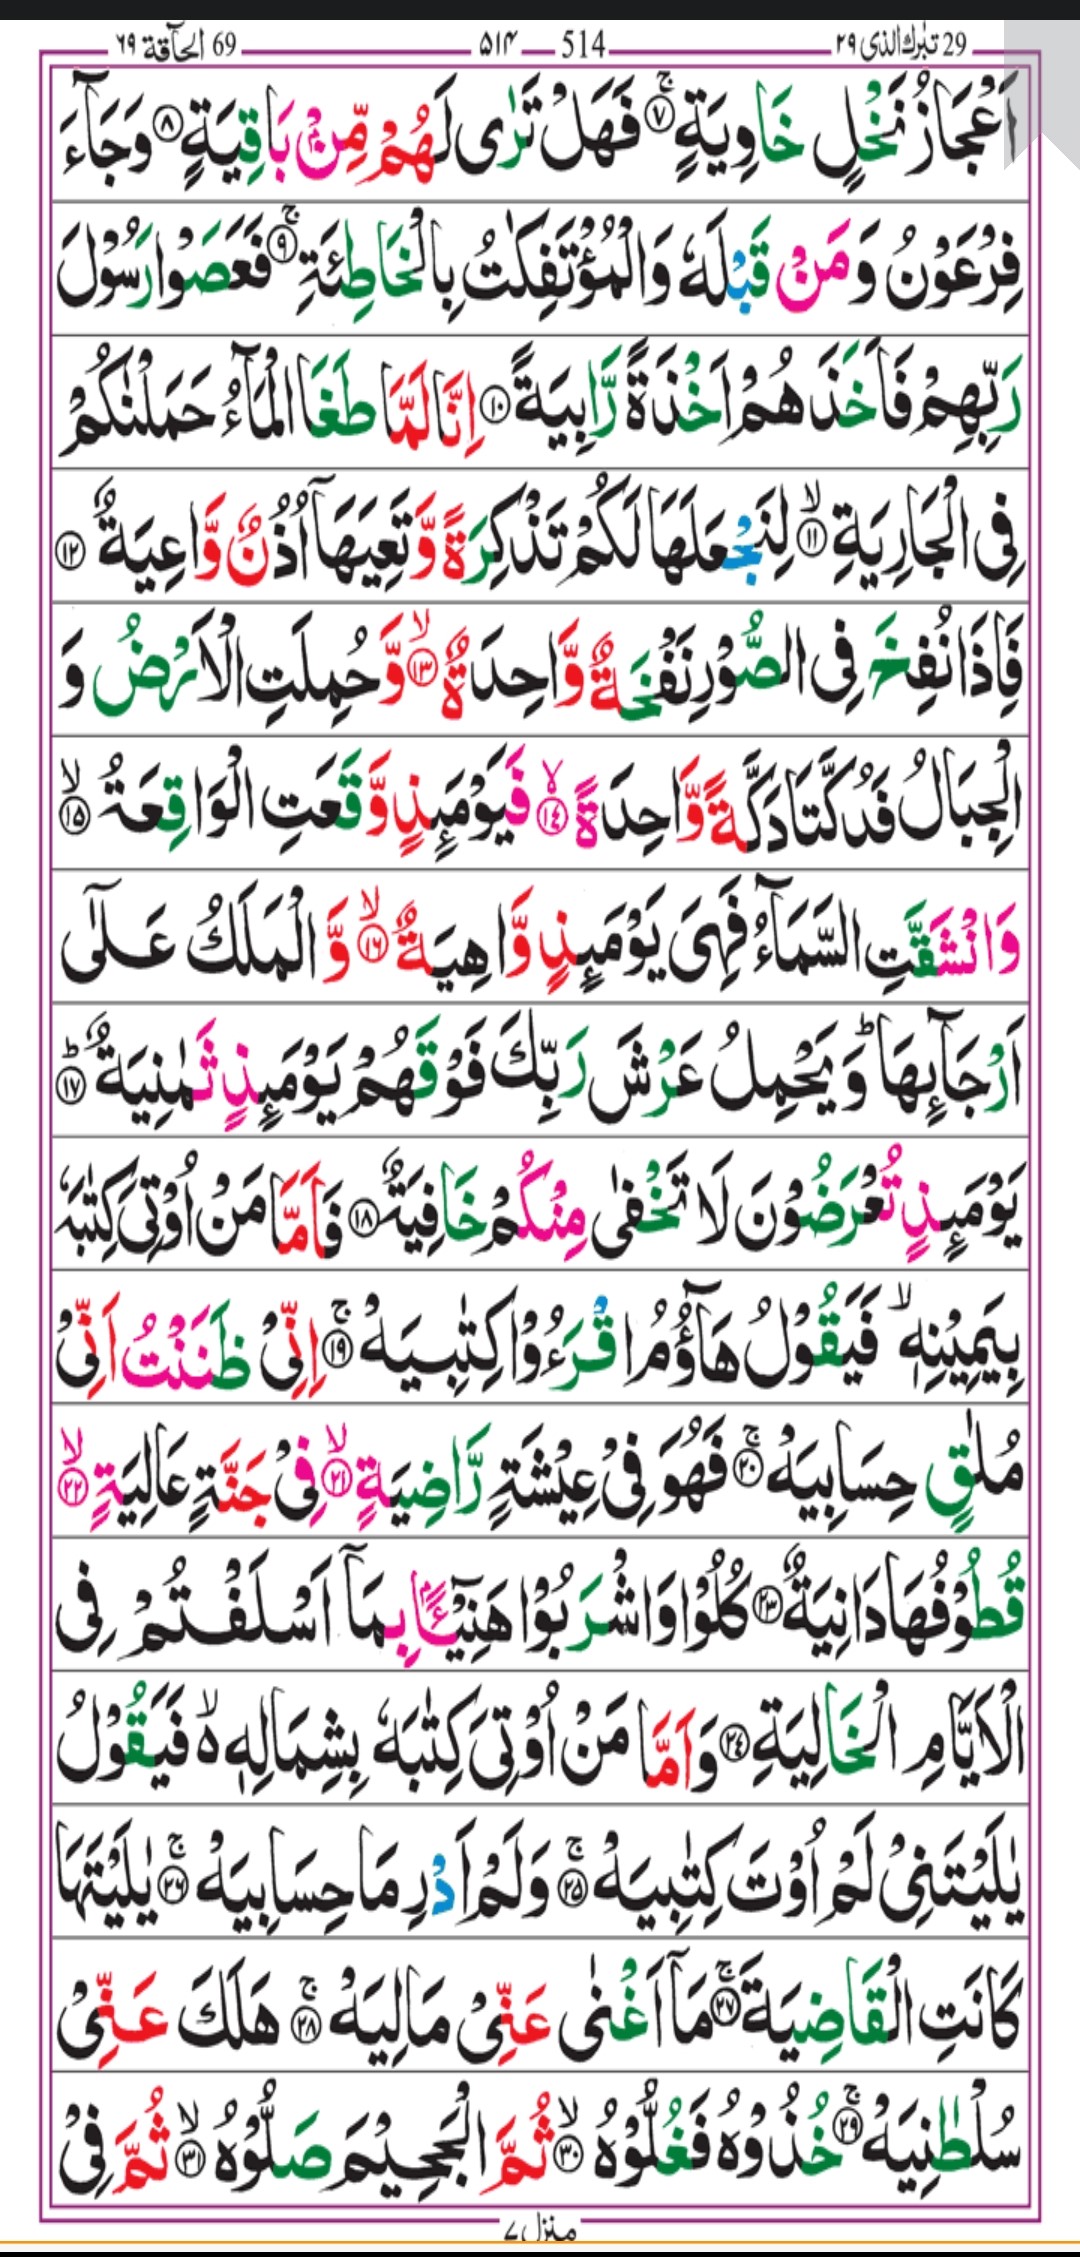 29 تبٰرك الذی ۲۹ 514 ۵۱۴ 69 الحآقة ۶۹
اَعْجَازُ نَخْلٍ خَاوِيَةٍ ۚ ﴿۷﴾ فَهَلْ تَرٰى لَهُمْ مِّنْۢ بَاقِيَةٍ ﴿۸﴾ وَجَآءَ
فِرْعَوْنُ وَمَنْ قَبْلَهٗ وَالْمُؤْتَفِكٰتُ بِالْخَاطِئَةِ ۚ ﴿۹﴾ فَعَصَوْا رَسُوْلَ
رَبِّهِمْ فَاَخَذَهُمْ اَخْذَةً رَّابِيَةً ﴿۱۰﴾ اِنَّا لَمَّا طَغَا الْمَآءُ حَمَلْنٰكُمْ
فِى الْجَارِيَةِ ۙ ﴿۱۱﴾ لِنَجْعَلَهَا لَكُمْ تَذْكِرَةً وَّتَعِيَهَاۤ اُذُنٌ وَّاعِيَةٌ ﴿۱۲﴾
فَاِذَا نُفِخَ فِى الصُّوْرِ نَفْخَةٌ وَّاحِدَةٌ ۙ ﴿۱۳﴾ وَّحُمِلَتِ الْاَرْضُ وَ
الْجِبَالُ فَدُكَّتَا دَكَّةً وَّاحِدَةً ۙ ﴿۱۴﴾ فَيَوْمَئِذٍ وَّقَعَتِ الْوَاقِعَةُ ۙ ﴿۱۵﴾
وَانْشَقَّتِ السَّمَآءُ فَهِىَ يَوْمَئِذٍ وَّاهِيَةٌ ۙ ﴿۱۶﴾ وَّالْمَلَكُ عَلٰٓى
اَرْجَآئِهَا ؕ وَيَحْمِلُ عَرْشَ رَبِّكَ فَوْقَهُمْ يَوْمَئِذٍ ثَمٰنِيَةٌ ؕ ﴿۱۷﴾
يَوْمَئِذٍ تُعْرَضُوْنَ لَا تَخْفٰى مِنْكُمْ خَافِيَةٌ ﴿۱۸﴾ فَاَمَّا مَنْ اُوْتِىَ كِتٰبَهٗ
بِيَمِيْنِهٖ ۙ فَيَقُوْلُ هَآؤُمُ اقْرَءُوْا كِتٰبِيَهْ ۚ ﴿۱۹﴾ اِنِّىْ ظَنَنْتُ اَنِّىْ
مُلٰقٍ حِسَابِيَهْ ۚ ﴿۲۰﴾ فَهُوَ فِىْ عِيْشَةٍ رَّاضِيَةٍ ۙ ﴿۲۱﴾ فِىْ جَنَّةٍ عَالِيَةٍ ۙ ﴿۲۲﴾
قُطُوْفُهَا دَانِيَةٌ ﴿۲۳﴾ كُلُوْا وَاشْرَبُوْا هَنِيْٓئًۢا بِمَاۤ اَسْلَفْتُمْ فِى
الْاَيَّامِ الْخَالِيَةِ ﴿۲۴﴾ وَاَمَّا مَنْ اُوْتِىَ كِتٰبَهٗ بِشِمَالِهٖ ۙ۬ فَيَقُوْلُ
يٰلَيْتَنِىْ لَمْ اُوْتَ كِتٰبِيَهْ ۚ ﴿۲۵﴾ وَلَمْ اَدْرِ مَا حِسَابِيَهْ ۚ ﴿۲۶﴾ يٰلَيْتَهَا
كَانَتِ الْقَاضِيَةَ ۚ ﴿۲۷﴾ مَاۤ اَغْنٰى عَنِّىْ مَالِيَهْ ۚ ﴿۲۸﴾ هَلَكَ عَنِّىْ
سُلْطٰنِيَهْ ۚ ﴿۲۹﴾ خُذُوْهُ فَغُلُّوْهُ ۙ ﴿۳۰﴾ ثُمَّ الْجَحِيْمَ صَلُّوْهُ ۙ ﴿۳۱﴾ ثُمَّ فِىْ
منزل ۷